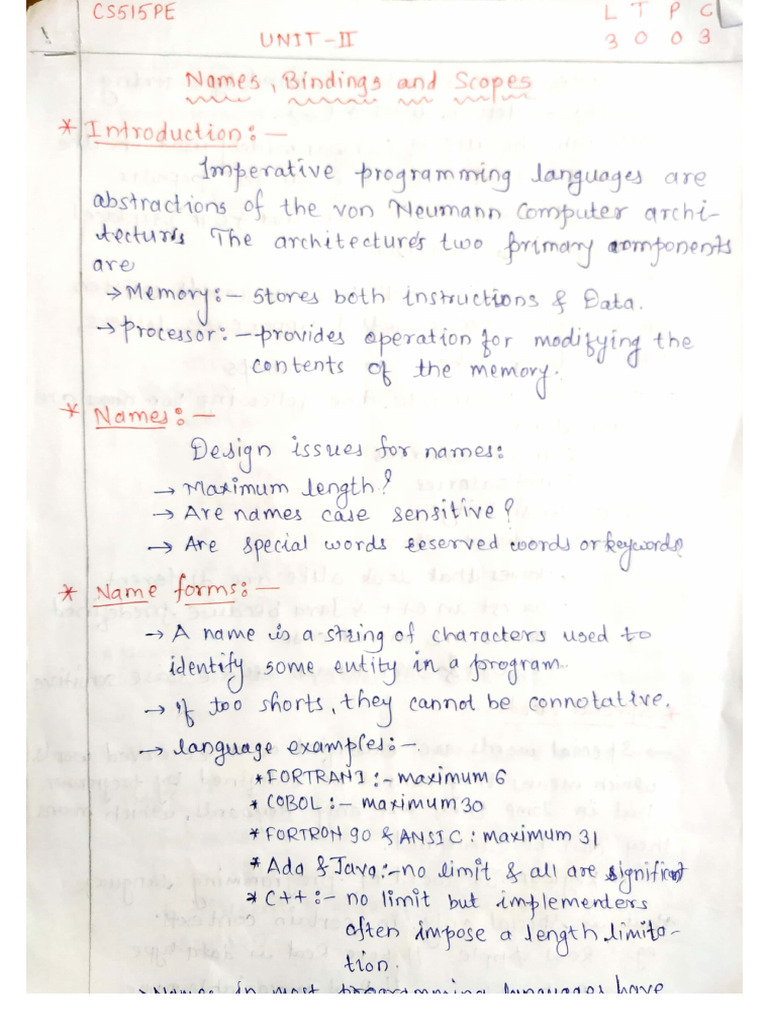 CS515PE
L T P C
UNIT-II
3 0 0 3
Names, Bindings and Scopes
* Introduction:-
Imperative programming languages are
abstractions of the von Neumann Computer archi-
tectures The architecture's two primary components
are
→ Memory:- Stores both instructions & Data.
→ Processor:- provides operation for modifying the
contents of the memory.
* Names:-
Design issues for names:
→ Maximum length?
→ Are names case sensitive?
→ Are special words reserved words or keywords?
* Name forms:-
→ A name is a string of characters used to
identify some entity in a program.
→ if too shorts, they cannot be connotative.
→ language examples:-
* FORTRAN I :- maximum 6
* COBOL :- maximum 30
* FORTRON 90 & ANSIC : maximum 31
* Ada & Java:- no limit & all are significant
* C++ :- no limit but implementers
often impose a length limita-
tion.
→ Names in most programming languages have